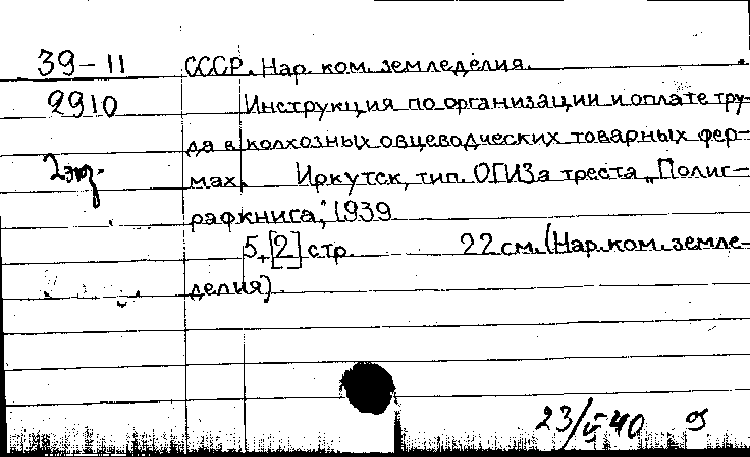 39-11 СССР. Нар. ком. земледелия.
2910 Инструкция по организации и оплате тру-
да в колхозных овцеводческих товарных фер-
2 экз. мах. Иркутск, тип. ОГИЗа треста „Полиг-
рафкнига," 1939.
5, [2] стр. 22 см. (Нар. ком. земле-
делия).
23/V 40